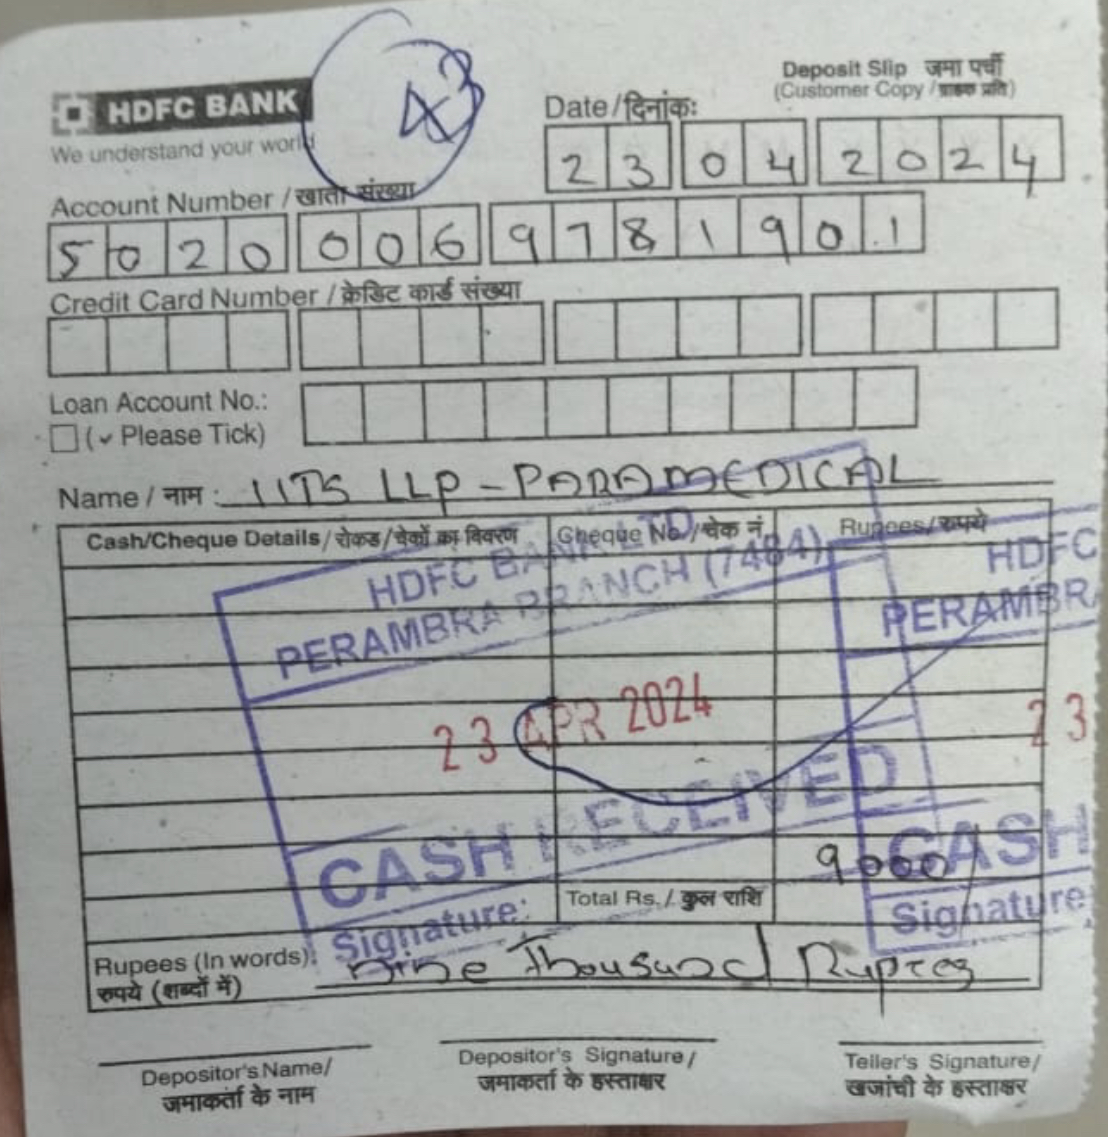 43
HDFC BANK
We understand your world
Deposit Slip जमा पर्ची
(Customer Copy / ग्राहक प्रति)
Date / दिनांक:
23 04 2024
Account Number / खाता संख्या
5020 006 9781901
Credit Card Number / क्रेडिट कार्ड संख्या
Loan Account No.:
(✓ Please Tick)
Name / नाम : IITS LLP - PARAMEDICAL
Cash/Cheque Details / रोकड / चेकों का विवरण Cheque No. / चेक नं. Rupees / रुपये
HDFC BANK LTD
PERAMBRA BRANCH (7484)
23 APR 2024
CASH RECEIVED
Signature:
HDFC
PERAMBRA
23
CASH
Signature:
9000/
Total Rs. / कुल राशि
Rupees (In words): Nine Thousand Rupees
रुपये (शब्दों में)
Depositor's Name / Depositor's Signature / Teller's Signature /
जमाकर्ता के नाम जमाकर्ता के हस्ताक्षर खजांची के हस्ताक्षर